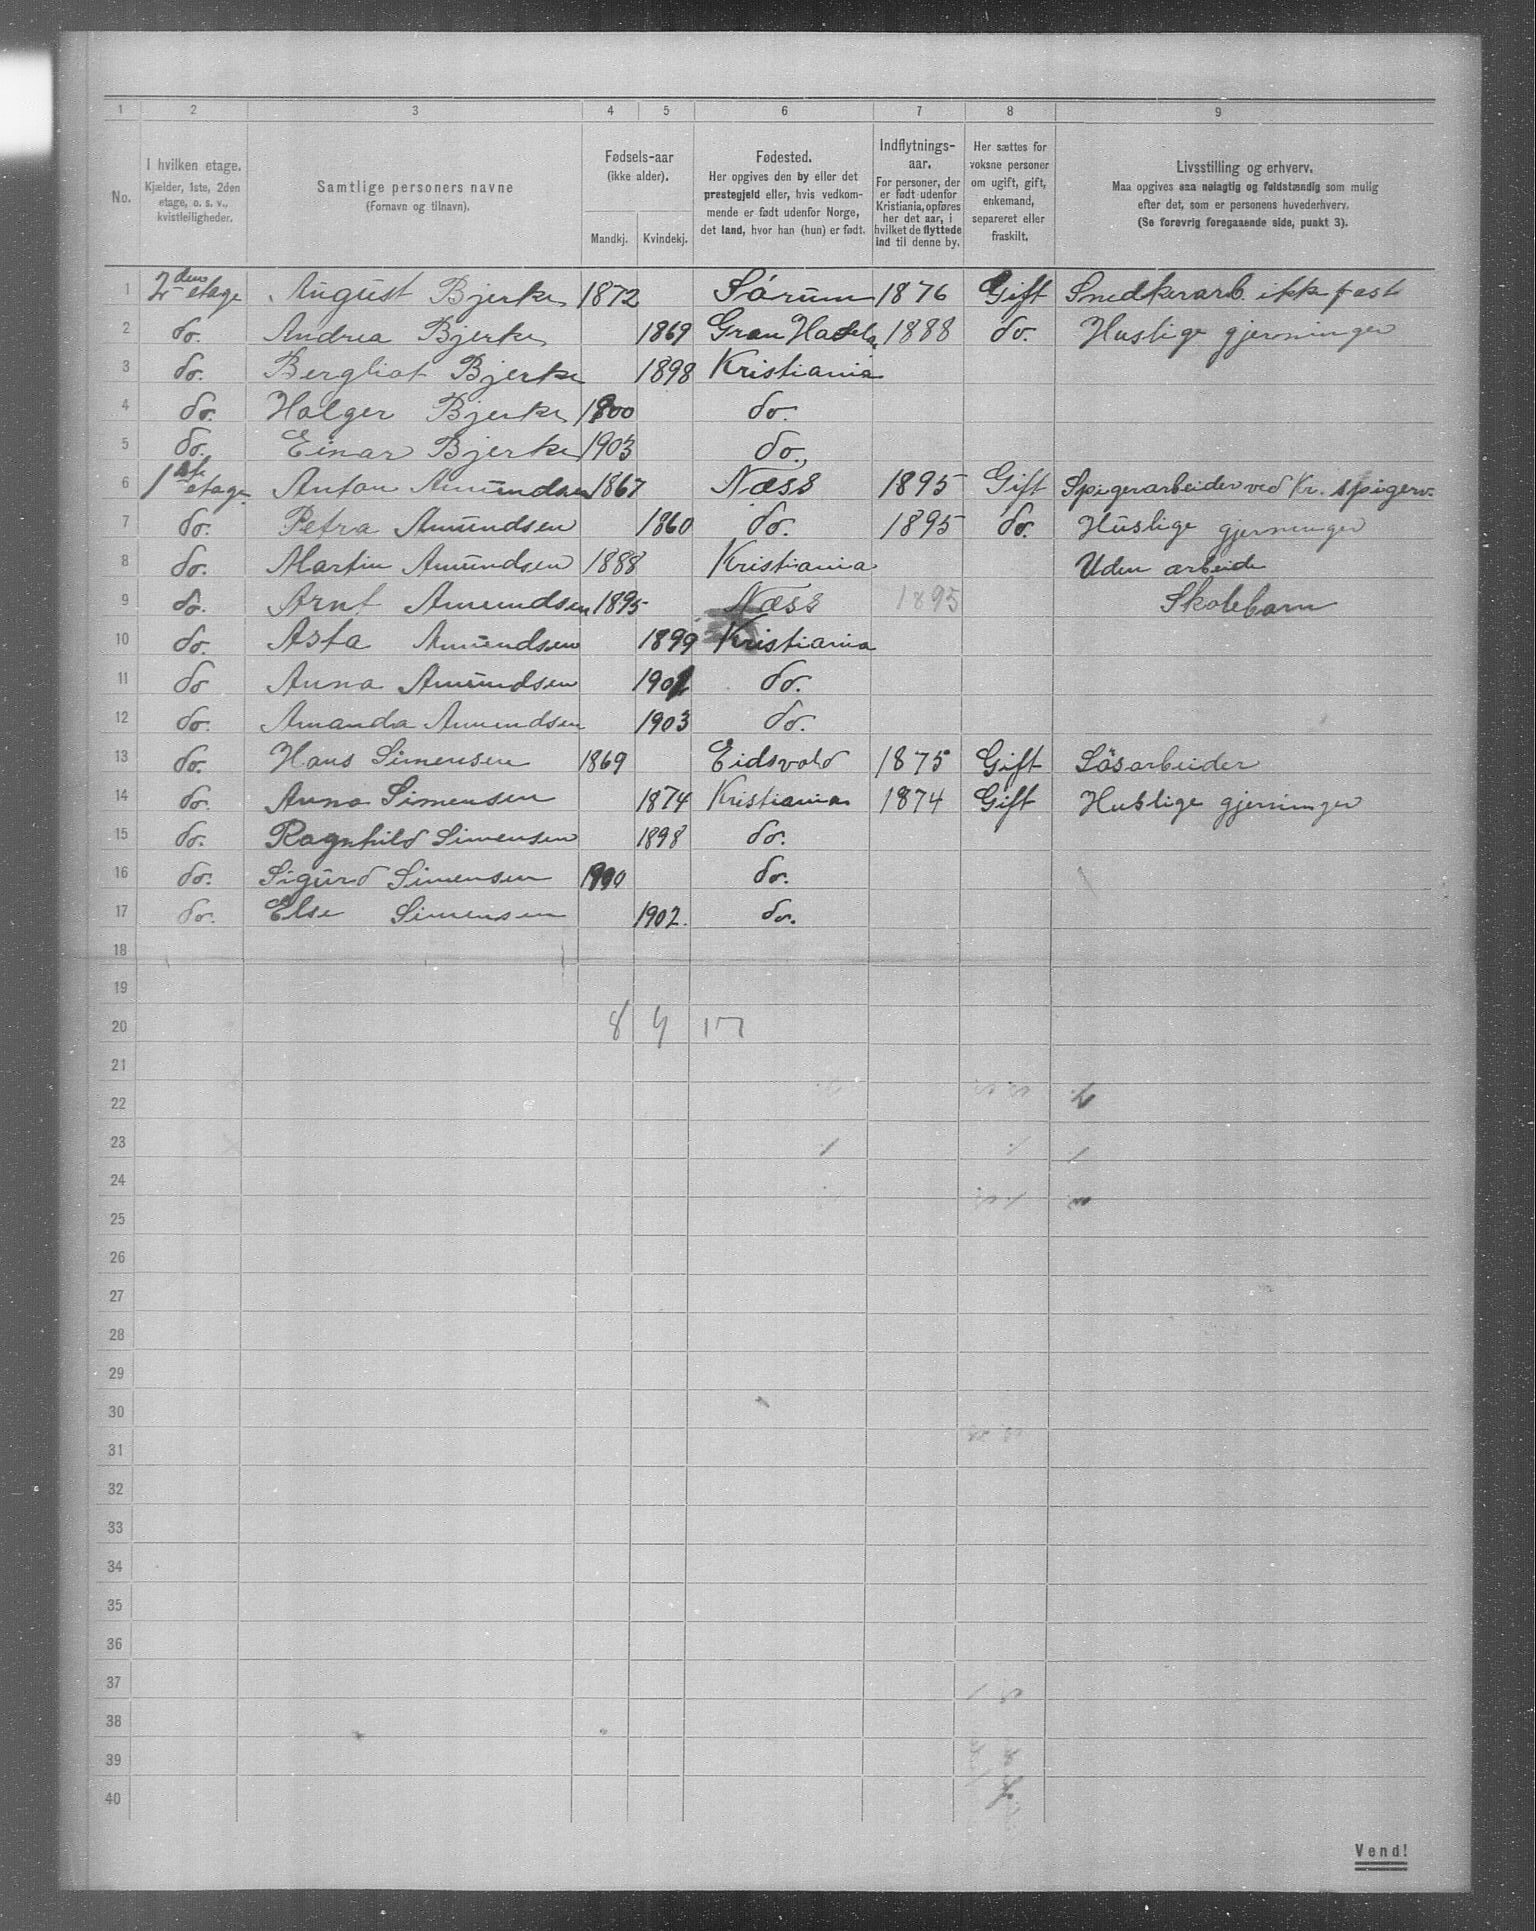 1 2 3 4 5 6 7 8 9
No.
I hvilken etage.
Kjælder, 1ste, 2den
etage, o. s. v.,
kvistleiligheder.
Samtlige personers navne
(Fornavn og tilnavn).
Fødsels-aar
(ikke alder).
Mandkj. Kvindekj.
Fødested.
Her opgives den by eller det
prestegjeld eller, hvis vedkom-
mende er født udenfor Norge,
det land, hvor han (hun) er født.
Indflytnings-
aar.
For personer, der
er født udenfor
Kristiania, opføres
her det aar, i
hvilket de flyttede
ind til denne by.
Her sættes for
voksne personer
om ugift, gift,
enkemand,
separeret eller
fraskilt.
Livsstilling og erhverv.
Maa opgives saa nøiagtig og fuldstændig som mulig
efter det, som er personens hovederhverv.
(Se forøvrig foregaaende side, punkt 3).
1 2den etage August Bjerke 1872 Sórum 1876 Gift Snedkerarb. ikke fast
2 do. Andrea Bjerke 1869 Gran Hadela. 1888 do. Huslige gjerninger
3 do. Bergliot Bjerke 1898 Kristiania
4 do. Holger Bjerke 1900 do.
5 do. Einar Bjerke 1903 do.
6 1ste etage Anton Amundsen 1867 Næss 1895 Gift Spigerarbeider ved Kr. spigerv.
7 do. Petra Amundsen 1860 do. 1895 do. Huslige gjerninger
8 do. Martin Amundsen 1888 Kristiania Uden arbeide
9 do. Arnt Amundsen 1895 Næss 1895 Skolebarn
10 do. Asta Amundsen 1899 Kristiania
11 do Anna Amundsen 1901 do.
12 do. Amanda Amundsen 1903 do.
13 do. Hans Simensen 1869 Eidsvold 1875 Gift Lösarbeider
14 do. Anna Simensen 1874 Kristiania 1874 Gift Huslige gjerninger
15 do. Ragnhild Simensen 1898 do.
16 do. Sigurd Simensen 1900 do.
17 do. Else Simensen 1902. do.
18
19
20 8 9 17
21
22
23
24
25
26
27
28
29
30
31
32
33
34
35
36
37
38
39
40
Vend!